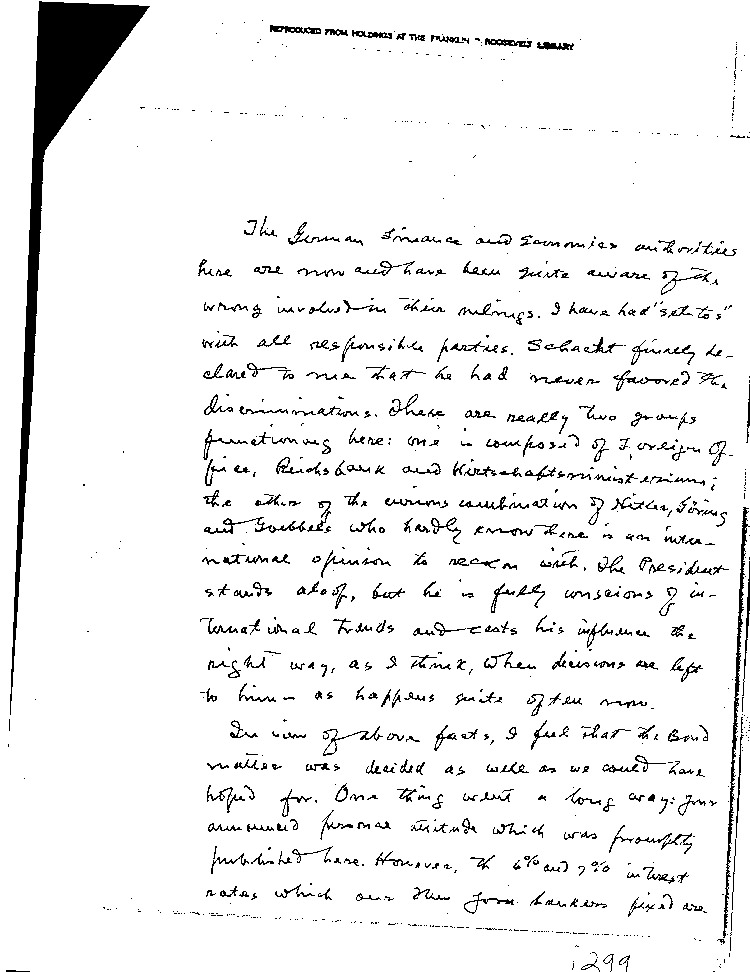 REPRODUCED FROM HOLDINGS AT THE FRANKLIN D. ROOSEVELT LIBRARY
The German Finance and Economics authorities
here are now and have been quite aware of the
wrong involved in their rulings. I have had "set to's"
with all responsible parties. Schacht finally de-
clared to me that he had never favored the
discriminations. There are really two groups
functioning here: one is composed of Foreign Of-
fice, Reichsbank and Wirtschaftsministerium;
the other of the curious combination of Hitler, Göring
and Goebbels who hardly know there is an inter-
national opinion to reckon with. The President
stands aloof, but he is fully conscious of in-
ternational trends and casts his influence the
right way, as I think, when decisions are left
to him - as happens quite often now.
In view of above facts, I feel that the Bond
matter was decided as well as we could have
hoped for. One thing went a long way: your
announced personal attitude which was promptly
published here. However, th 6% and 7% interest
rates which our New York bankers fixed are
299